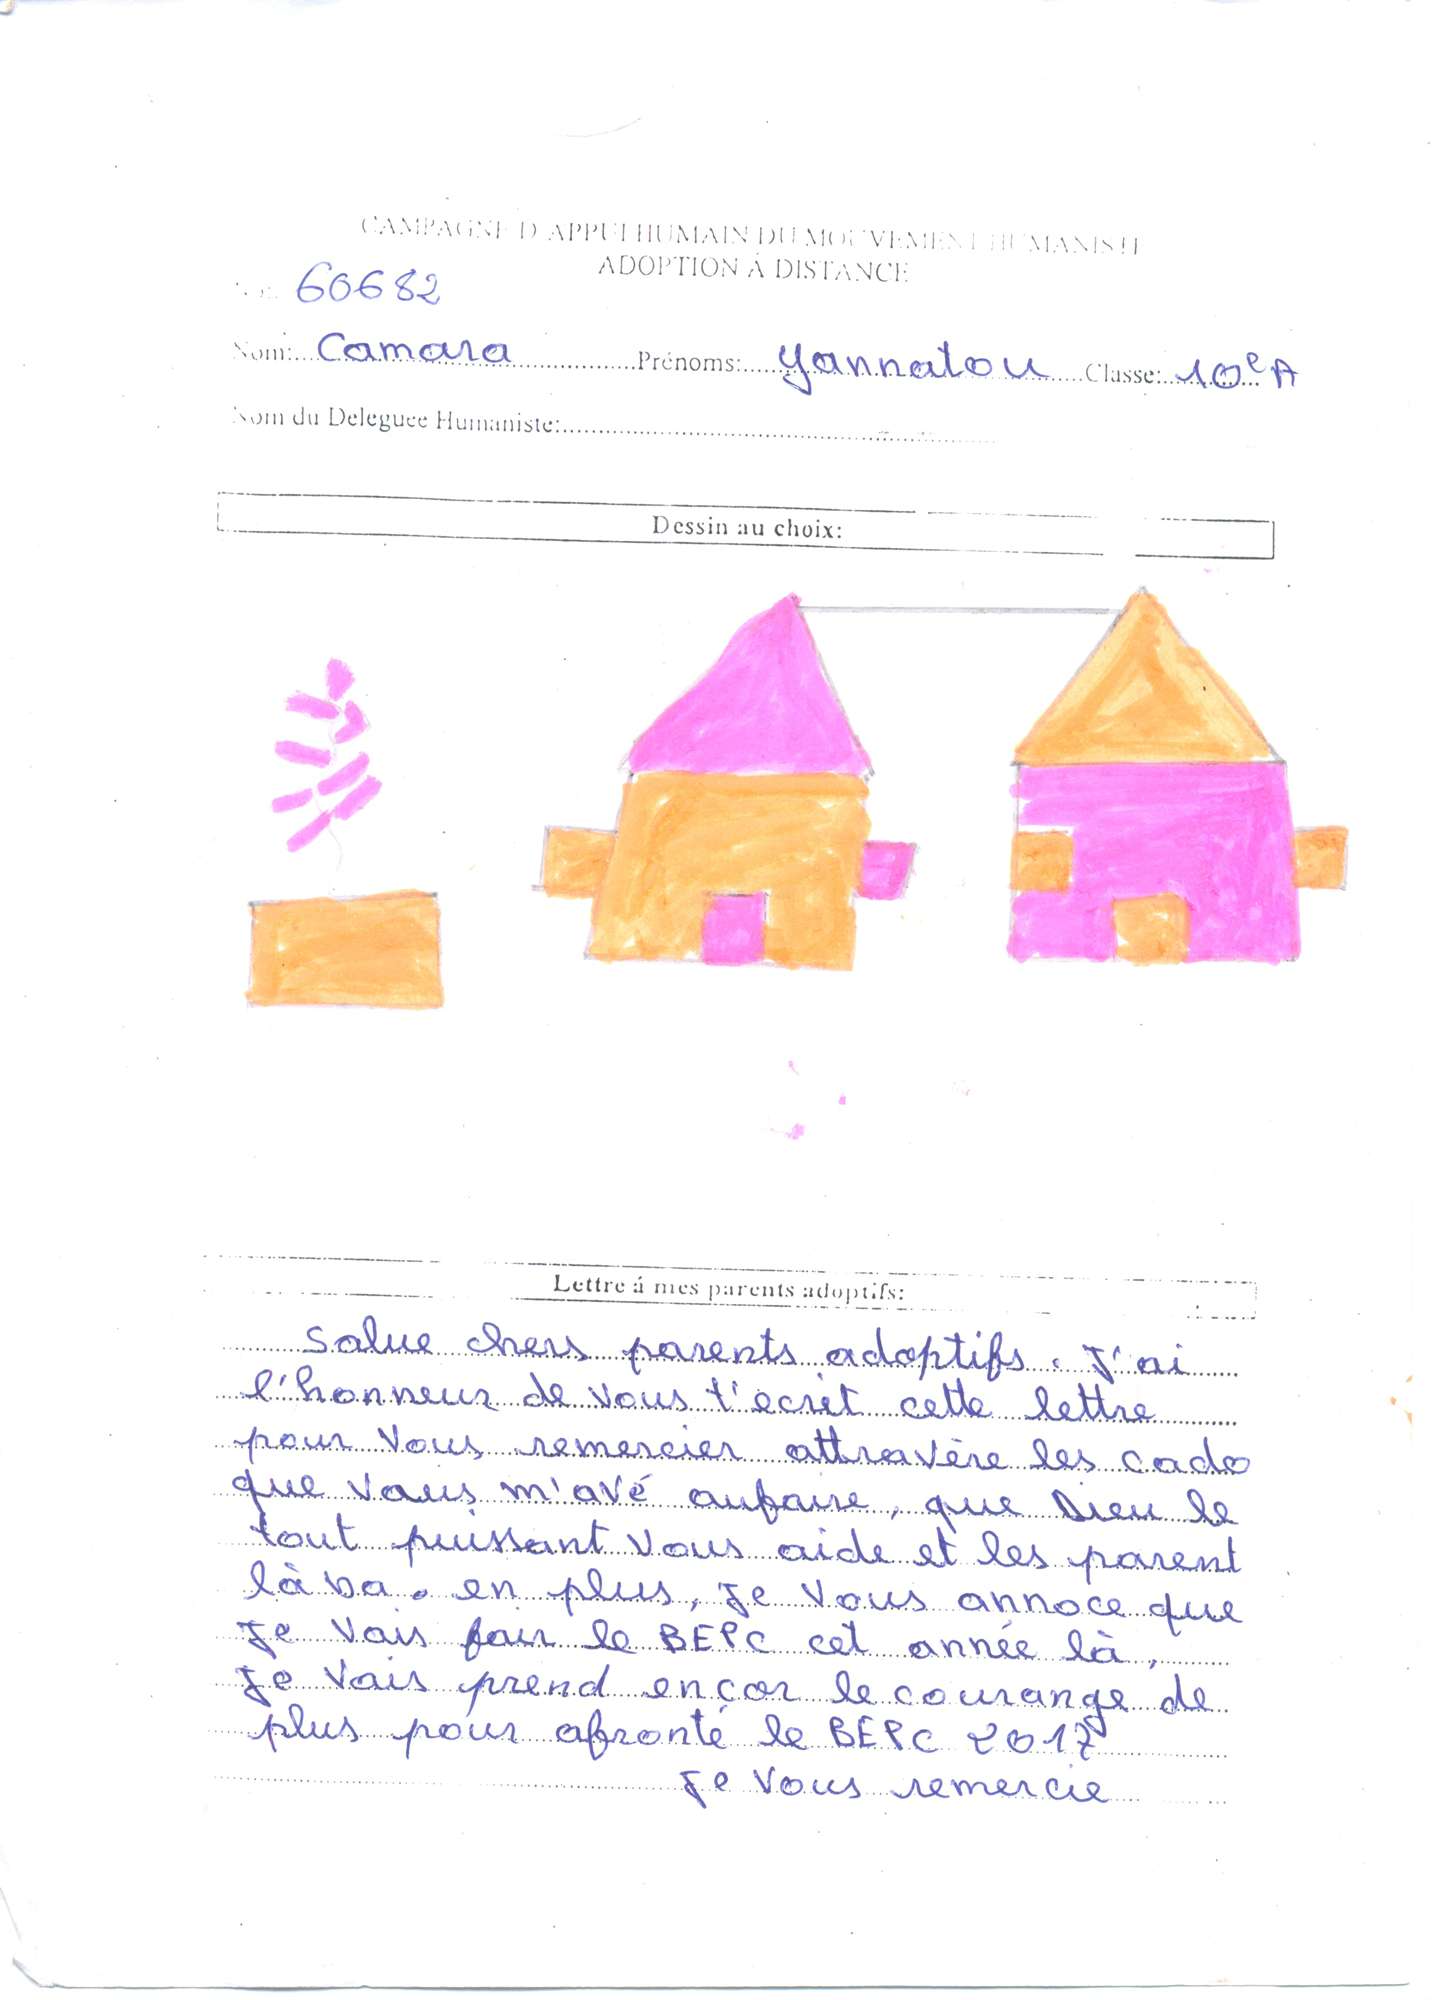 CAMPAGNE D'APPUI HUMAIN DU MOUVEMENT HUMANISTE
ADOPTION À DISTANCE
60682
Nom: Camara Prénoms: Yannatou Classe: 10e A
Nom du Deleguee Humaniste:
Dessin au choix:
Lettre á mes parents adoptifs:
Salue chers parents adoptifs. J'ai
l'honneur de vous t'ecrit cette lettre
pour vous remercier attravère les cado
que vous m'avé aufaire, que Dieu le
tout puissant vous aide et les parent
là ba. en plus, je vous annoce que
je vais fair le BEPC cet année là,
je vais prend encor le courange de
plus pour afronté le BEPC 2017
je vous remercie